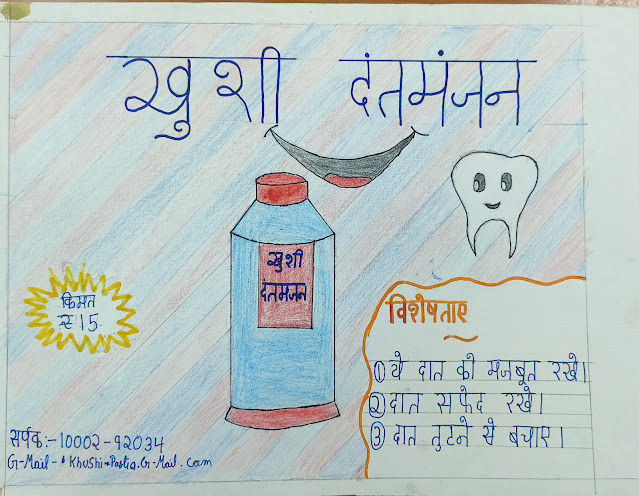 खुशी दंतमंजन
खुशी
दंतमंजन
किमत
रु 15
विशेषताए
① ये दात को मजबूत रखे।
② दात सफेद रखे।
③ दात तुटने से बचाए।
सर्पक:-10002-12034
G-Mail- Khushi-
G-Mail.com